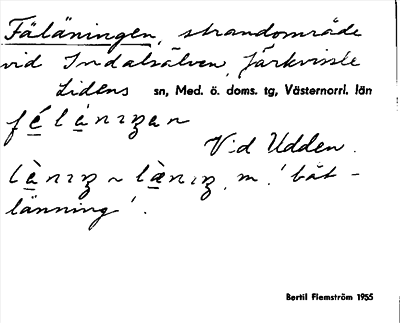 Fäläningen, strandområde
vid Indalsälven, Järkvissle
Lidens sn, Med. ö. doms. tg, Västernorrl. län
félànıŋan
Vid Udden.
lànıŋ ~ lànıŋ, m. 'båt-
länning'.
Bertil Flemström 1955